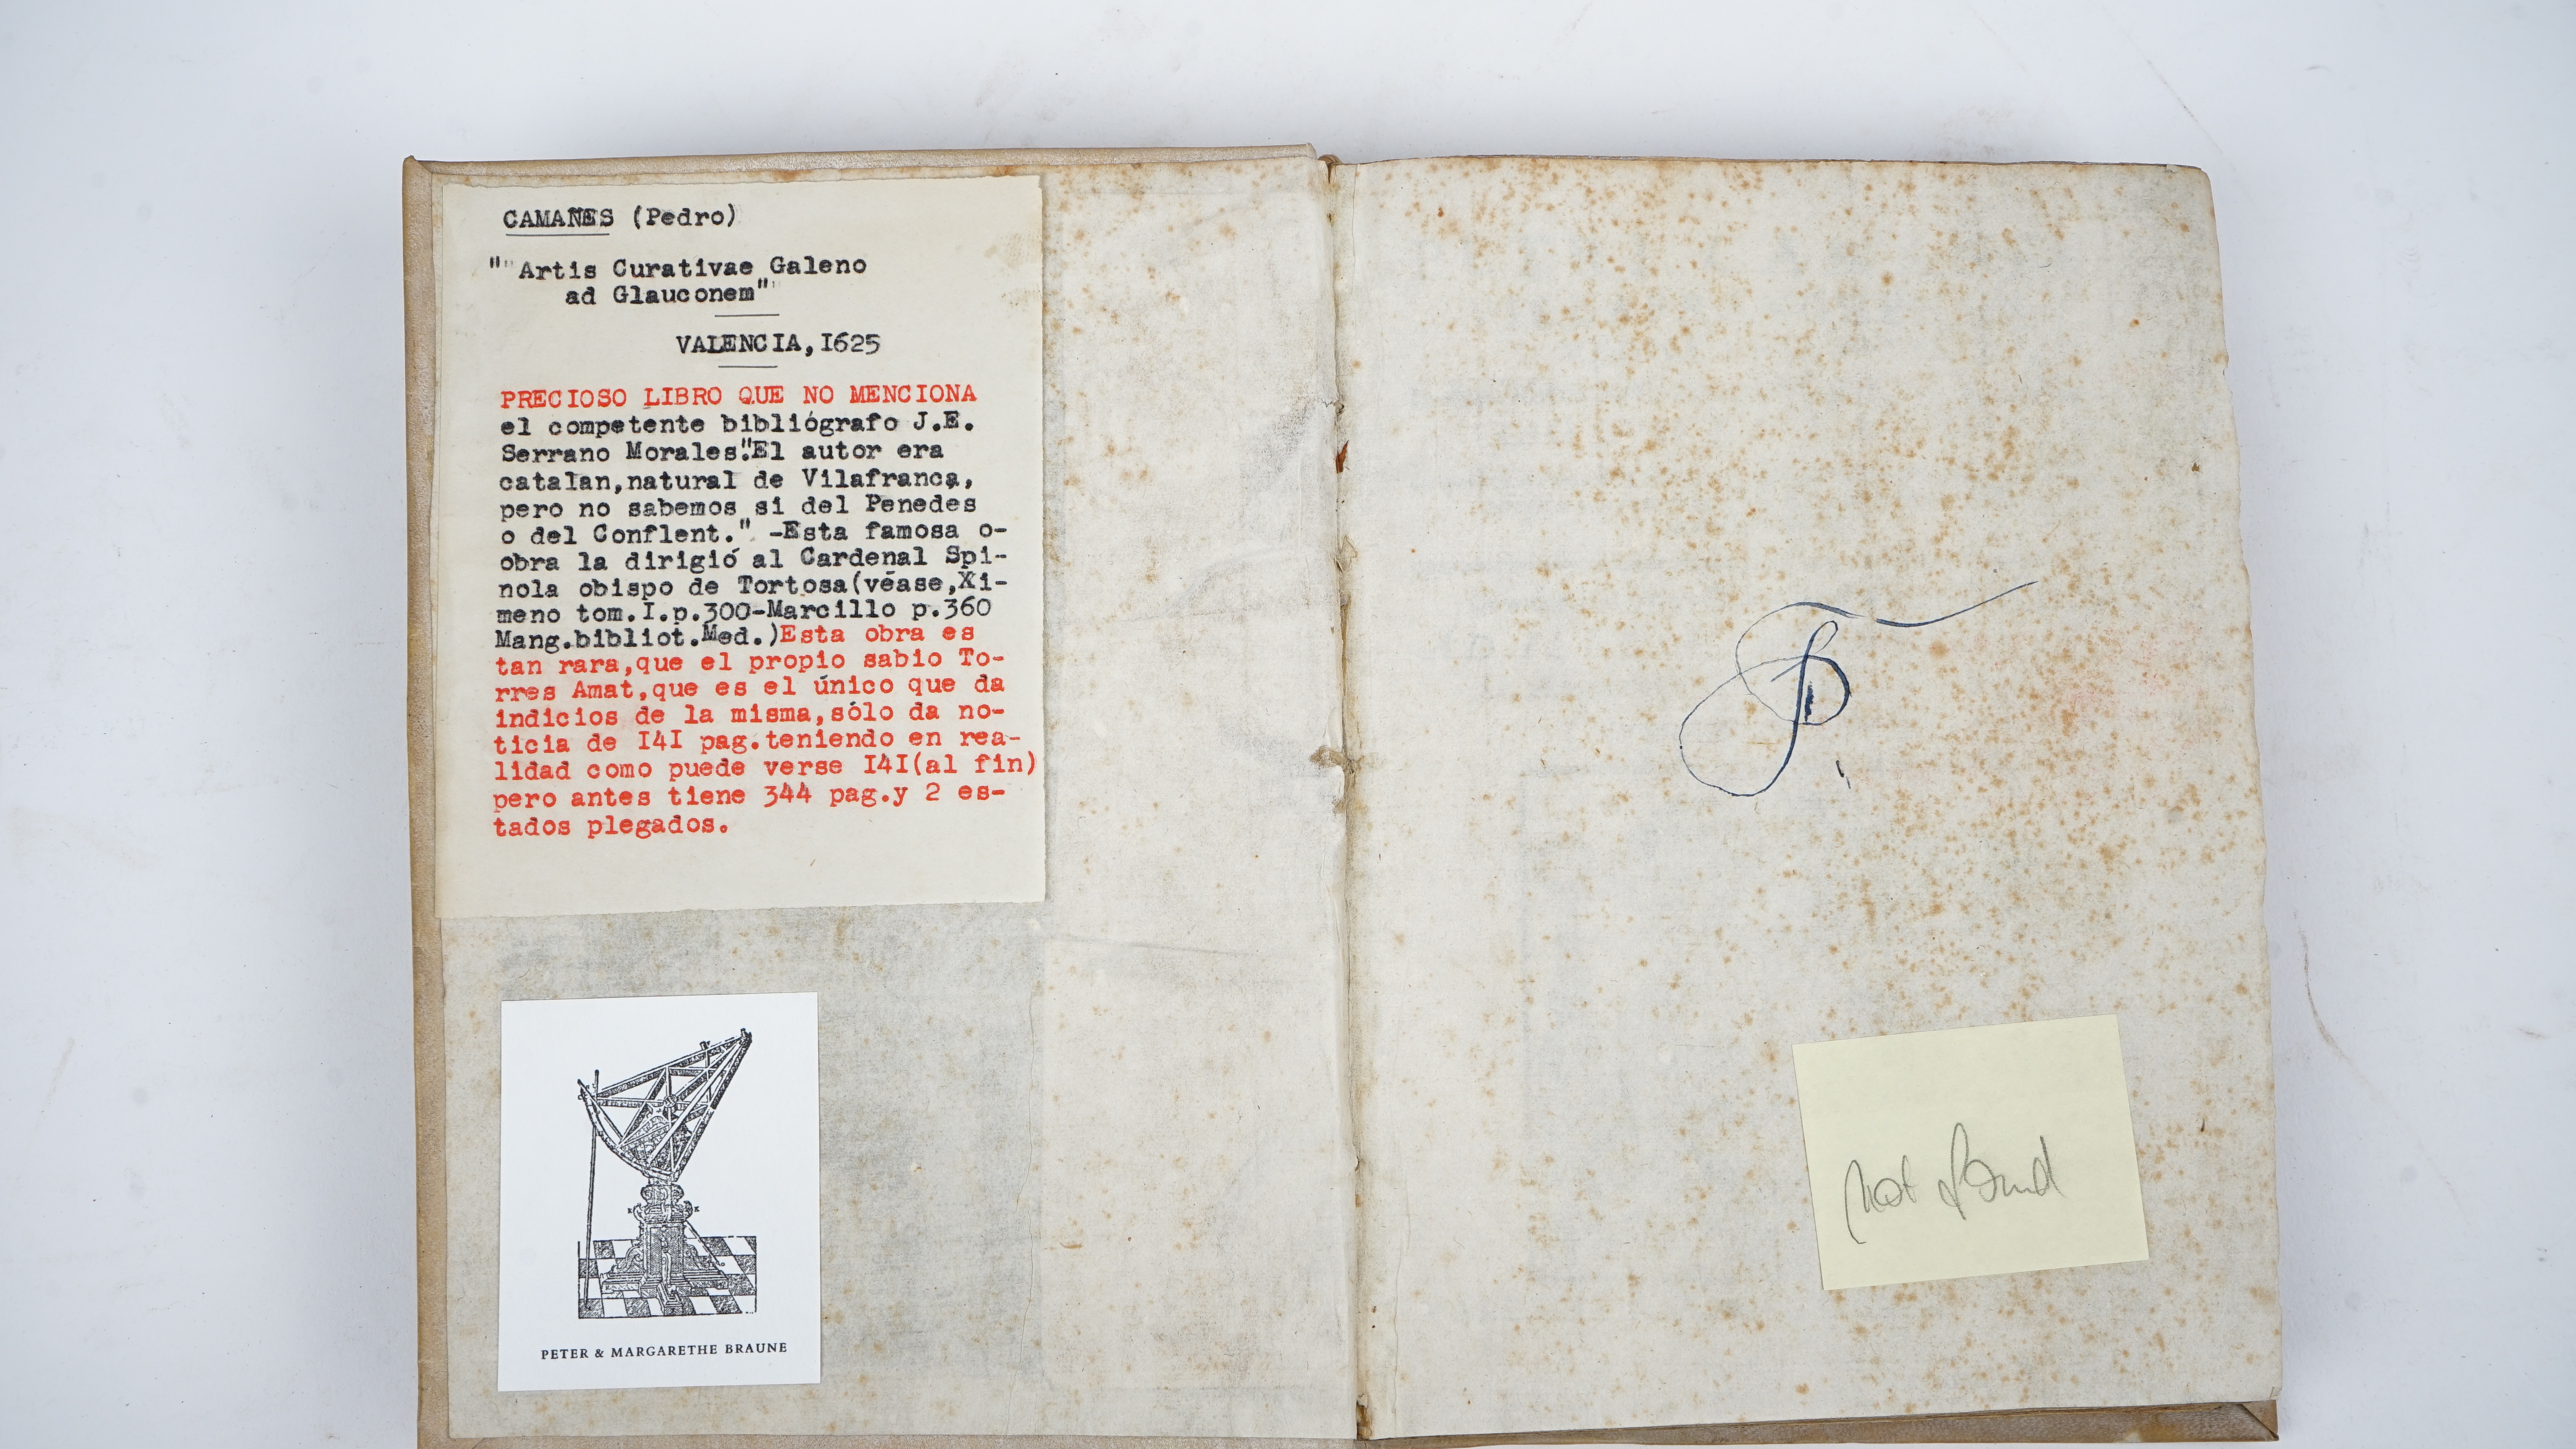 CAMAÑES (Pedro)
""Artis Curativae Galeno
ad Glauconem"
VALENCIA,I625
PRECIOSO LIBRO QUE NO MENCIONA
el competente bibliógrafo J.E.
Serrano Morales."El autor era
catalan,natural de Vilafranca,
pero no sabemos si del Penedes
o del Conflent." -Esta famosa o-
obra la dirigió al Cardenal Spi-
nola obispo de Tortosa(véase,Xi-
meno tom.I.p.300-Marcillo p.360
Mang.bibliot.Med.)Esta obra es
tan rara,que el propio sabio To-
rres Amat,que es el único que da
indicios de la misma,sólo da no-
ticia de I4I pag.teniendo en rea-
lidad como puede verse I4I(al fin)
pero antes tiene 344 pag.y 2 es-
tados plegados.
PETER & MARGARETHE BRAUNE
not found